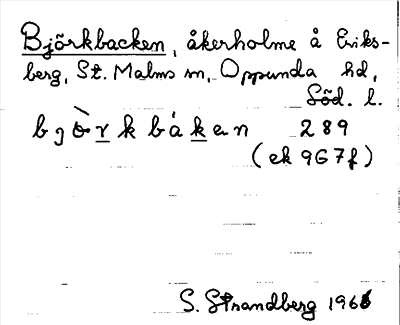 Björkbacken, åkerholme å Eriks-
berg, St. Malms sn, Oppunda hd,
Söd. l.
bjò̀rkbákan 289
(ek 967f)
S. Strandberg 1966